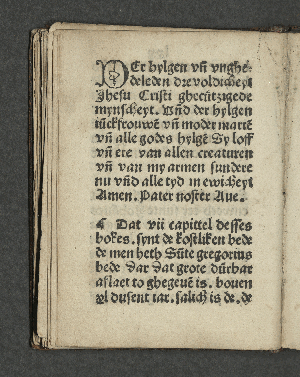 DEr hylgen vn̄ vnghe⸗
deleden dre voldicheyt
Jhesu Cristi ghecrützigede
mynscheyt. Vnd der hylgen
iūckfrouwē vn̄ moder mariē
vn̄ alle godes hylgē Sy loff
vn̄ ere van allen creaturen
vn̄ van my armen sundere
nu vnd alle tyd in ewicheyt
Amen. Pater noster Aue.
¶ Dat vii capittel desses
bokes. synt de kostliken bede
de men heth Sūte gregorius
bede dar dat grote dürbar
aflaet to ghegeuē is. bouen
xl dusent iar. salich is de. de